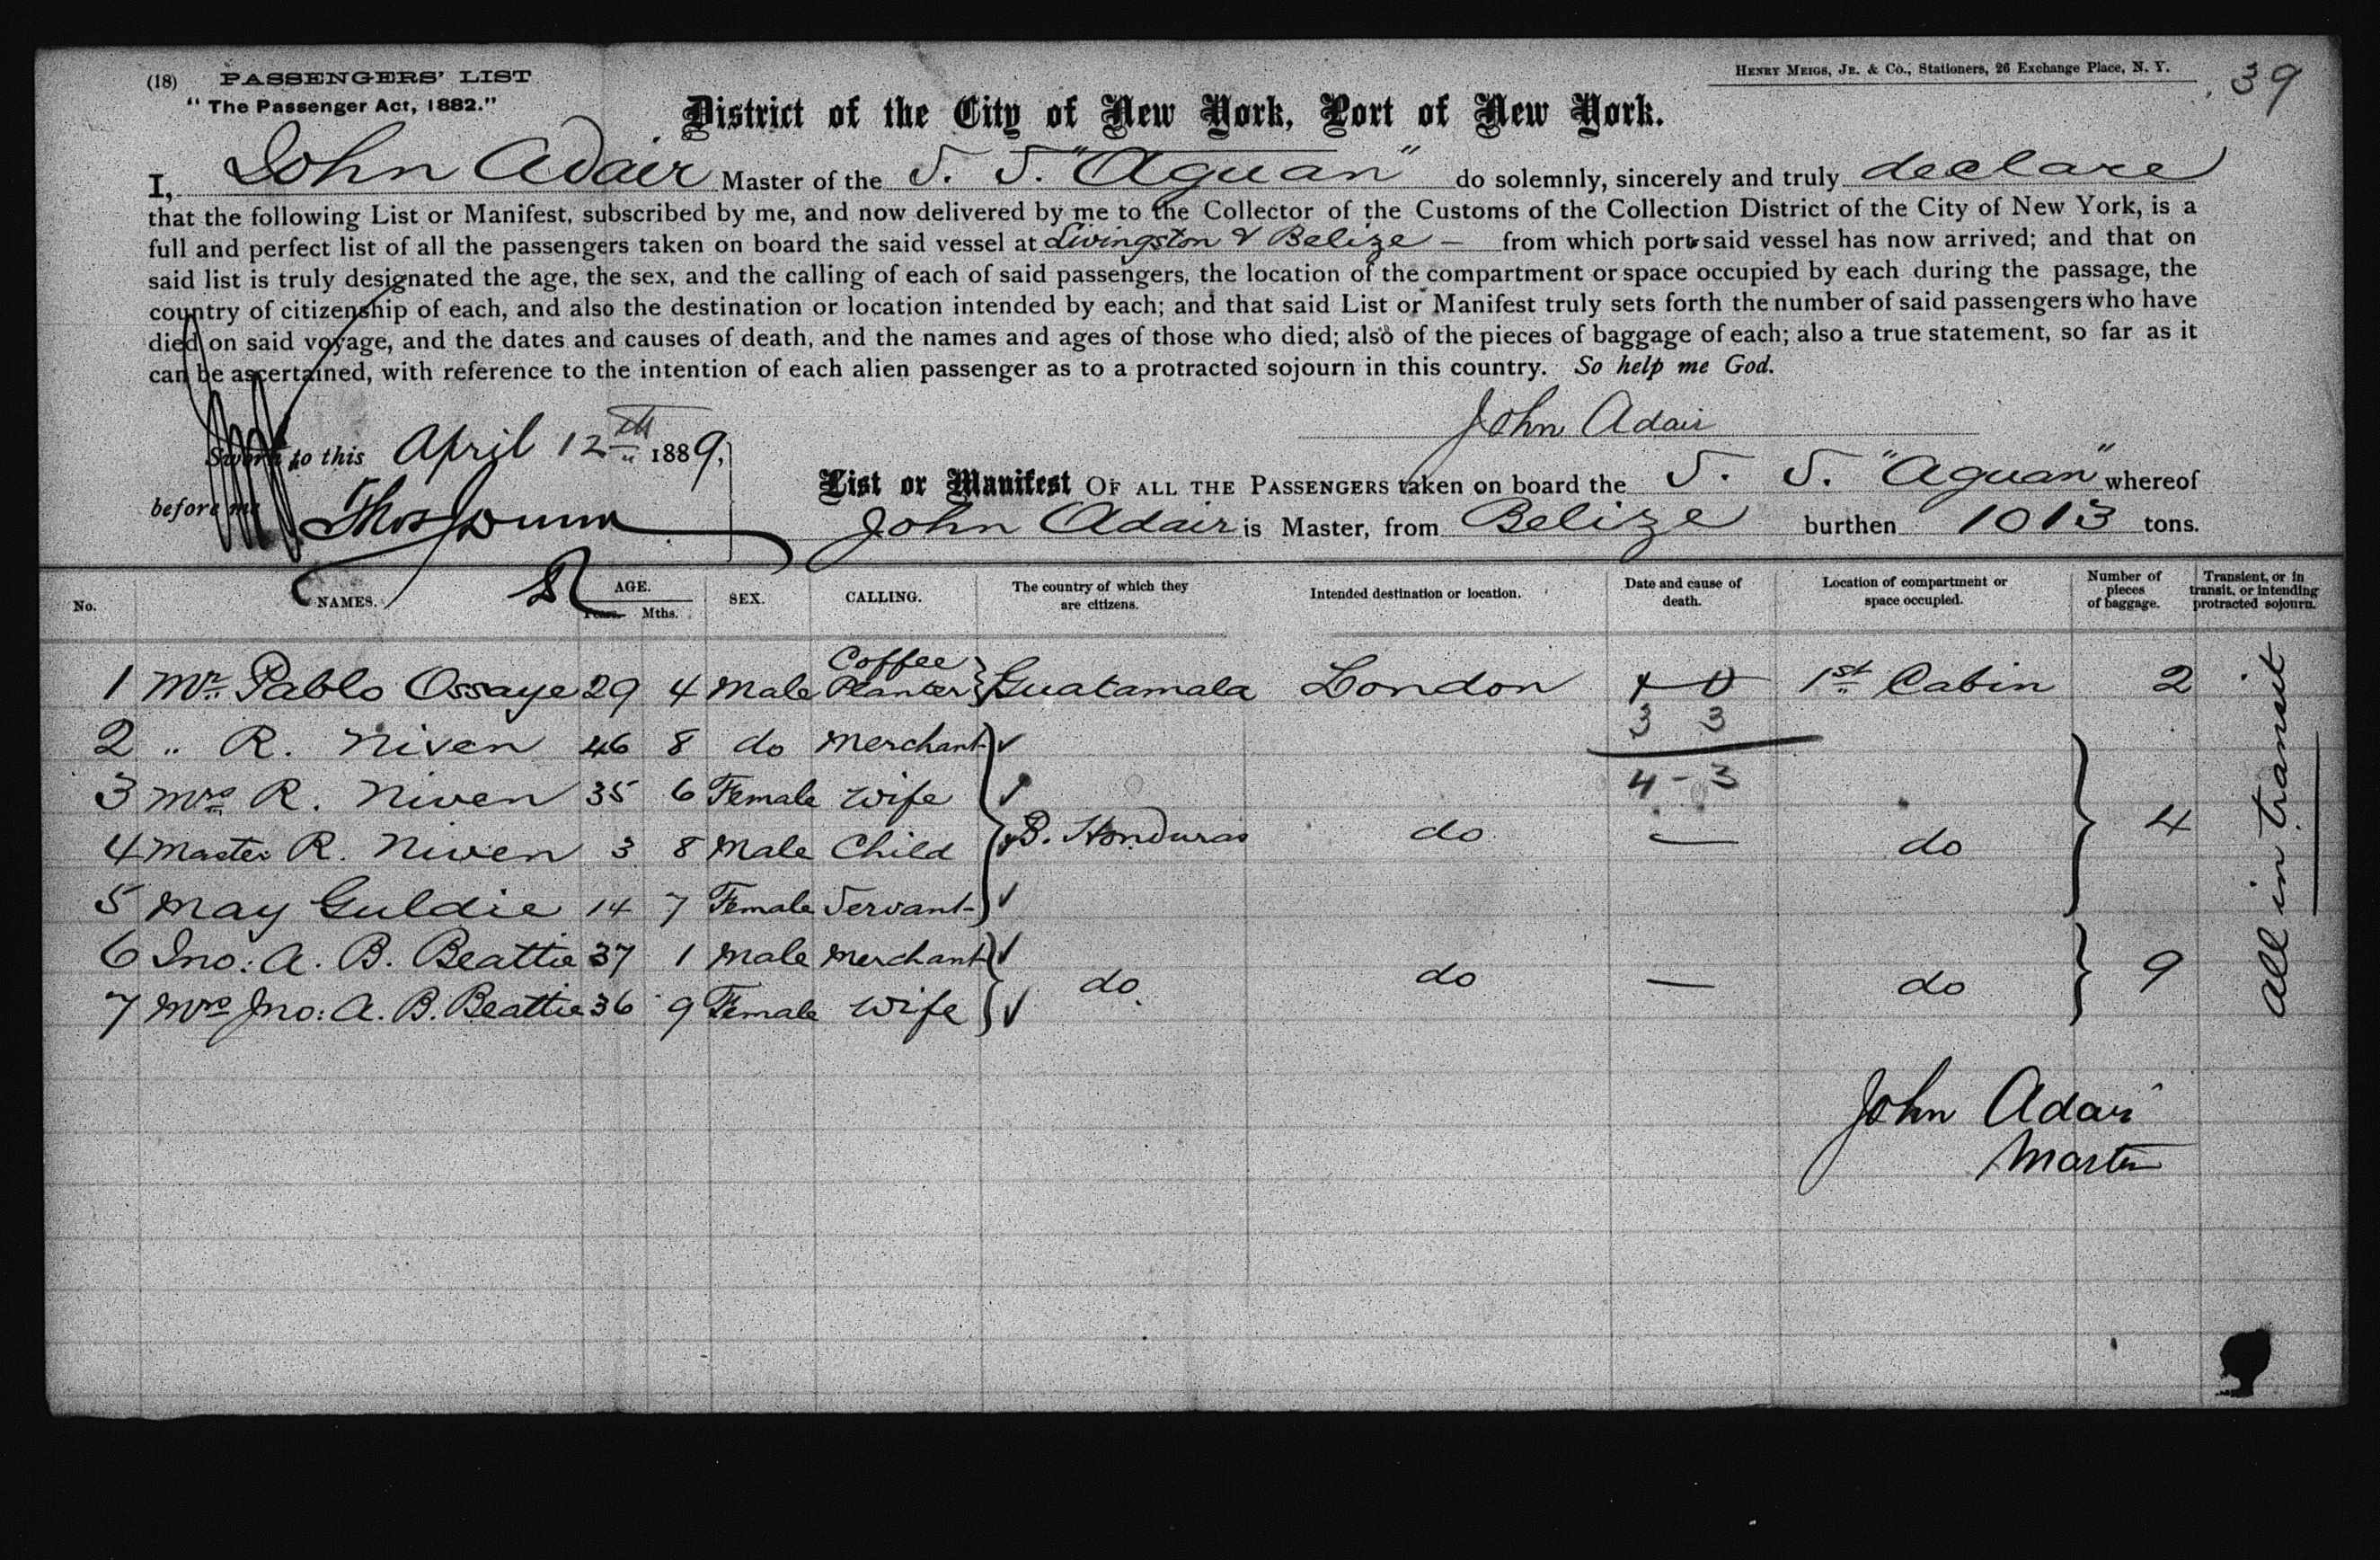 (18) PASSENGERS' LIST
HENRY MEIGS, JR. & CO., Stationers, 26 Exchange Place, N. Y.
39
"The Passenger Act, 1882."
District of the City of New York, Port of New York.
I, John Adair Master of the S. S. "Aguan" do solemnly, sincerely and truly declare
that the following List or Manifest, subscribed by me, and now delivered by me to the Collector of the Customs of the Collection District of the City of New York, is a
full and perfect list of all the passengers taken on board the said vessel at Livingston & Belize – from which ports said vessel has now arrived; and that on
said list is truly designated the age, the sex, and the calling of each of said passengers, the location of the compartment or space occupied by each during the passage, the
country of citizenship of each, and also the destination or location intended by each; and that said List or Manifest truly sets forth the number of said passengers who have
died on said voyage, and the dates and causes of death, and the names and ages of those who died; also of the pieces of baggage of each; also a true statement, so far as it
can be ascertained, with reference to the intention of each alien passenger as to a protracted sojourn in this country. So help me God.
John Adair
Sworn to this April 12th 1889,
before me
List or Manifest OF ALL THE PASSENGERS taken on board the S. S. "Aguan" whereof
John Adair is Master, from Belize burthen 1013 tons.
No. NAMES. AGE. Years. Mths. SEX. CALLING. The country of which they are citizens. Intended destination or location. Date and cause of death. Location of compartment or space occupied. Number of pieces of baggage. Transient, or in transit, or intending protracted sojourn.
1 Mr. Pablo Ossaye 29 4 Male Coffee Planter Guatamala London 1 0 1st Cabin 2
2 " R. Niven 46 8 do Merchant 3 3
3 Mrs R. Niven 35 6 Female Wife 4 - 3
4 Master R. Niven 3 8 Male Child B. Honduras do — do 4
5 May Guldie 14 7 Female Servant
6 Jno: A. B. Beattie 37 1 Male Merchant
7 Mrs Jno: A. B. Beattie 36 9 Female Wife do. do — do 9
All in transit
John Adair
Master